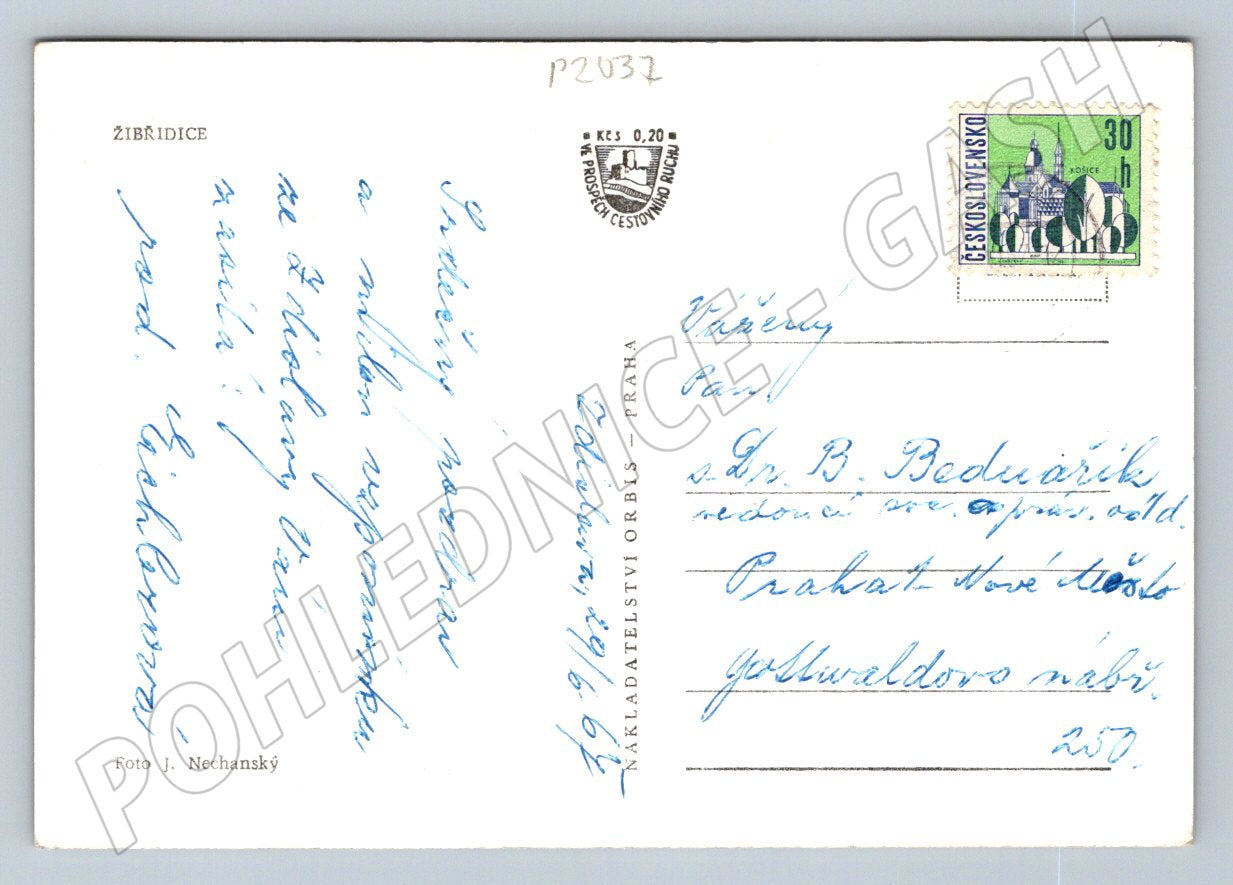 P2037
ŽIBŘIDICE
Kčs 0,20
VE PROSPĚCH CESTOVNÍHO RUCHU
ČESKOSLOVENSKO
30 h
KOŠICE
Zdislava, 29/6 67
Srdečný pozdrav
a milou vzpomínku
ze Zdislavy Vám
zasílá:
rod.
NAKLADATELSTVÍ ORBIS – PRAHA
Vážený
Pan
s. Dr. B. Bednařík
vedoucí
Praha 1 - Nové Město
Gottwaldovo nábř.
250.
Foto J. Nechanský
POHLEDNICE - GASH